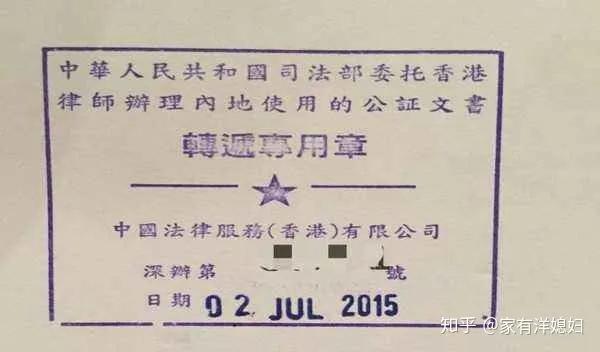 中華人民共和國司法部委托香港
律師辦理內地使用的公証文書
轉遞專用章
中國法律服務(香港)有限公司
深辦第 號
日期 02 JUL 2015
知乎 @家有洋媳妇